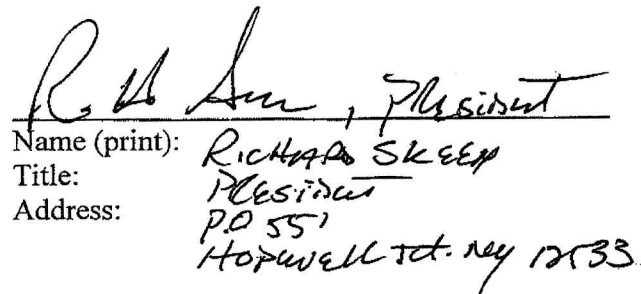 R. H , President
Name (print): RICHARD SKEEN
Title: President
Address: P.O 551
HOPEWELL Jct. NY 12533